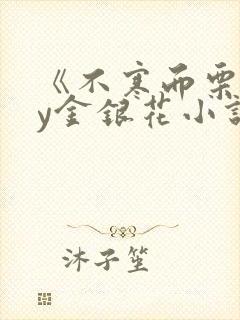 《不寒而栗
y金银花小说
沐子笙